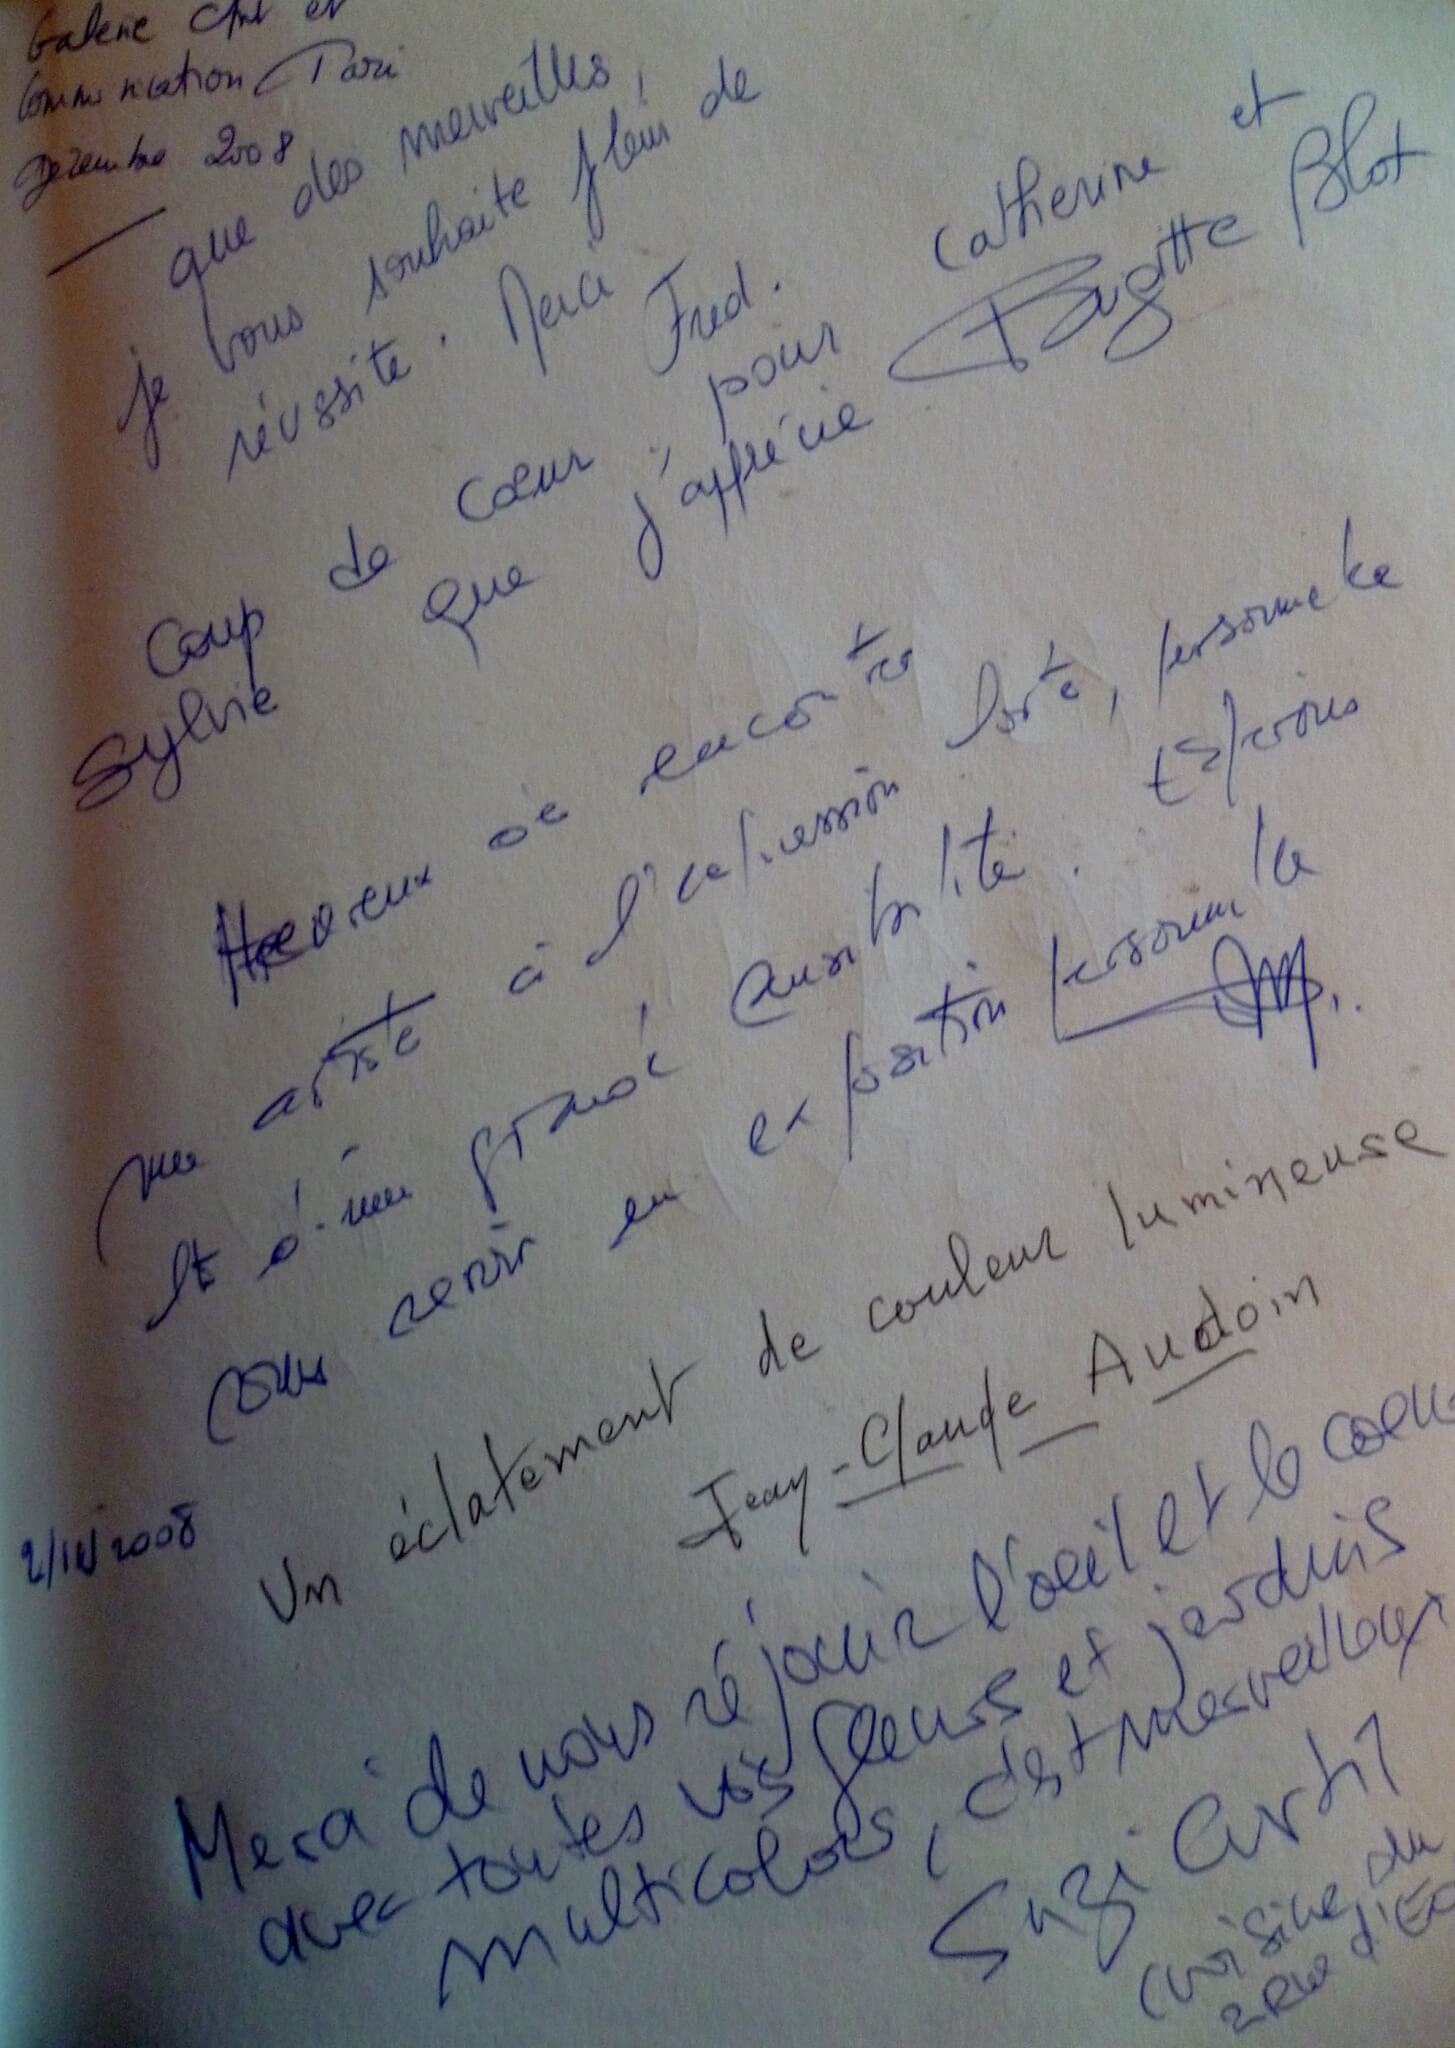 Galerie Art et
Communication Paris
Décembre 2008
que des merveilles,
je vous souhaite plein de
réussite. Merci
Fred.
Coup de coeur, pour Catherine et
Sylvie que j'apprécie Brigitte Blot
Heureux de rencontrer
une artiste à l'expression forte, personnelle
et d'une grande sensibilité. Espérons
vous revoir en exposition personnelle
2/12/2008
Un éclatement de couleur lumineuse
Jean-Claude Audoin
Merci de nous réjouir l'oeil et le coeur
avec toutes vos fleurs et jardins
multicolores, c'est merveilleux
Suzi
(voisine du
2 Rue